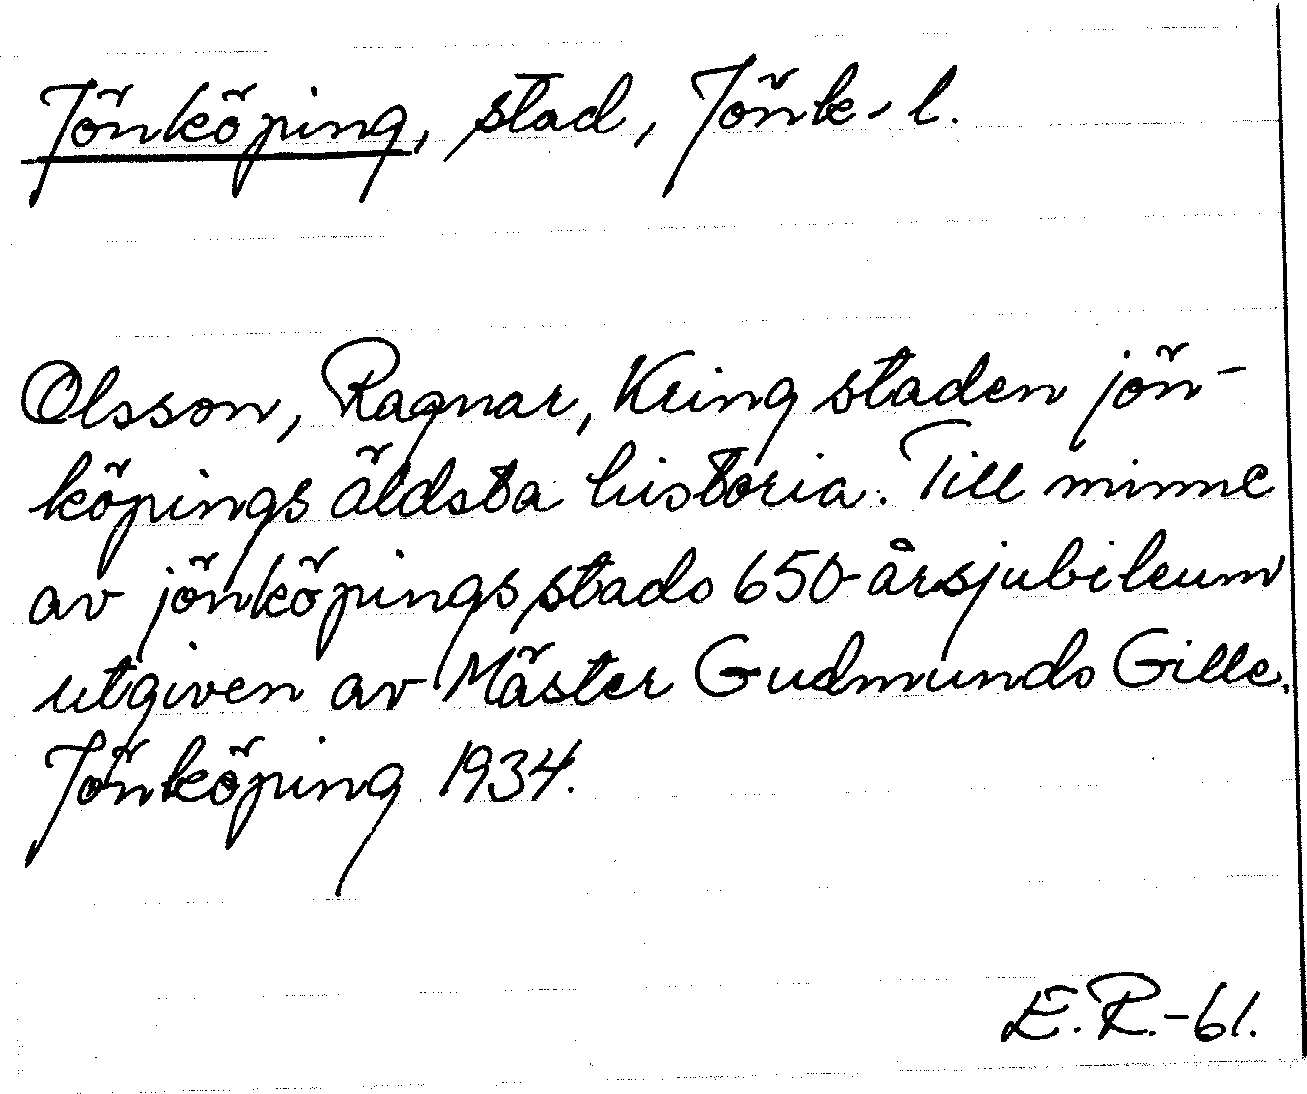 Jönköping, stad, Jönk. l.
Olsson, Ragnar, Kring staden jön-
köpings äldsta historia. Till minne
av jönköpings stads 650-årsjubileum
utgiven av Mäster Gudmunds Gille.
Jönköping 1934.
E.R.-61.